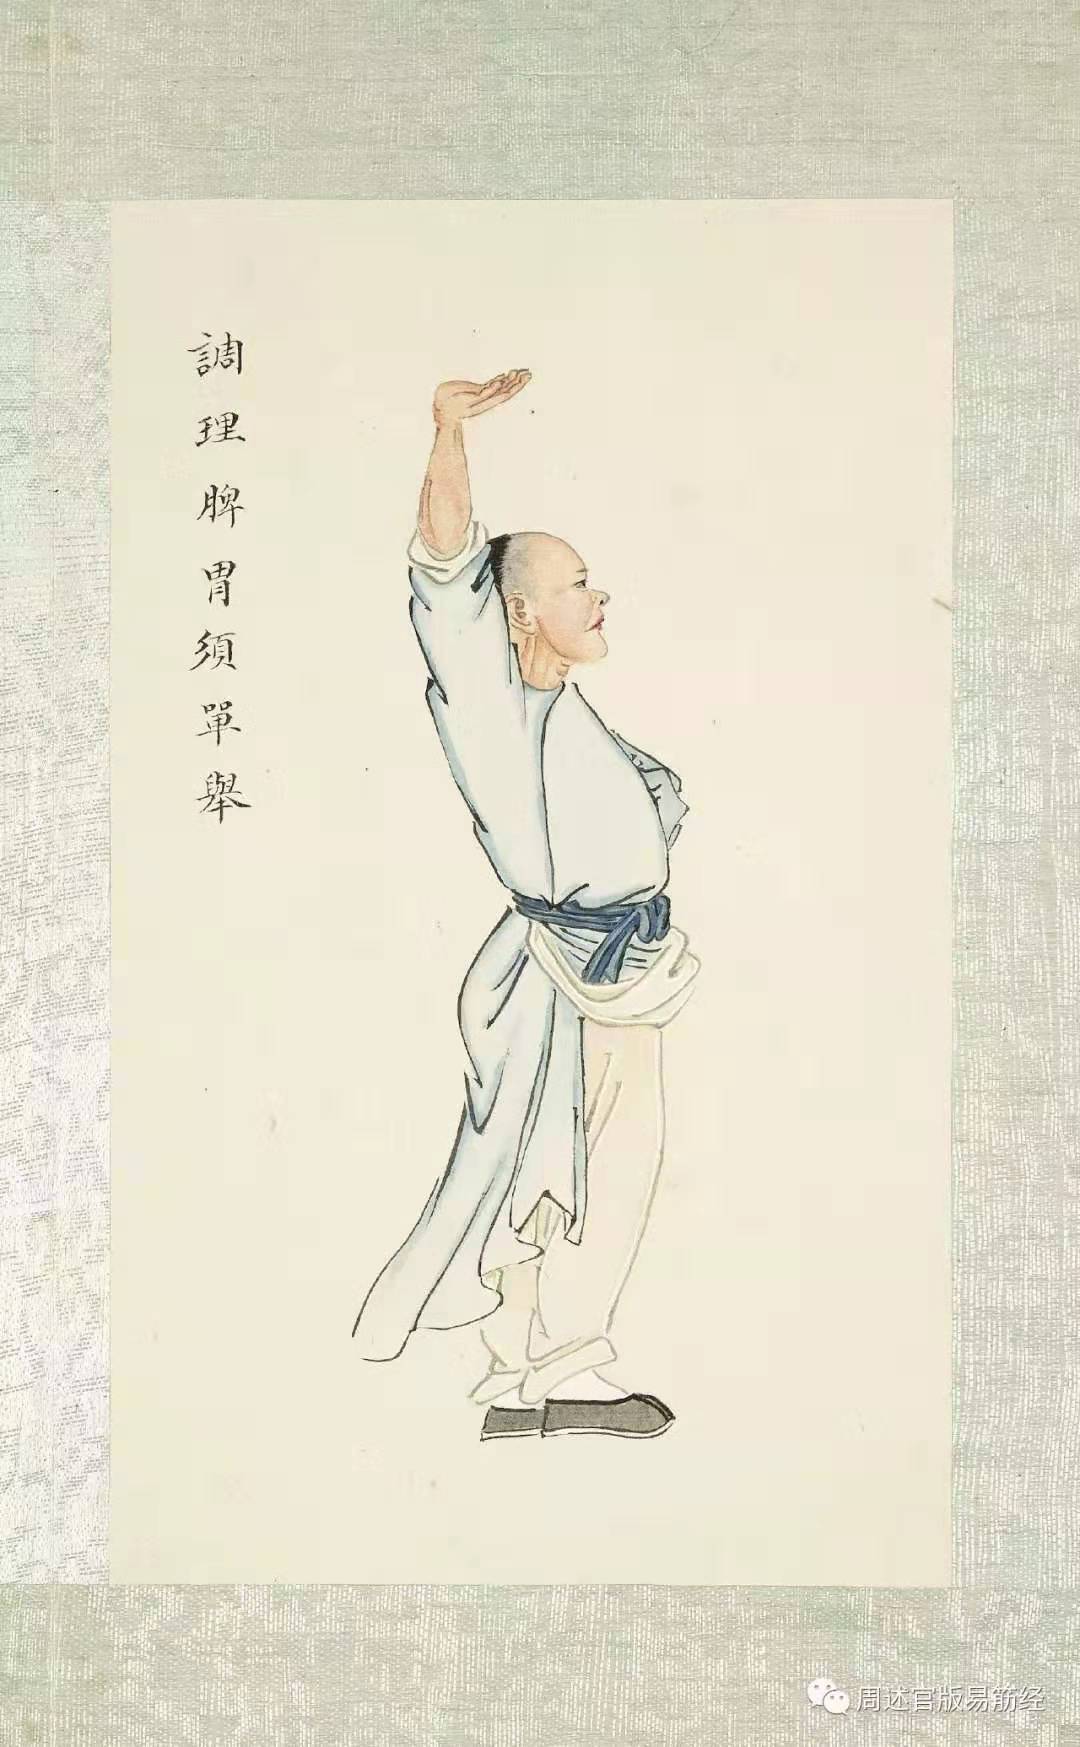 調理脾胃須單舉
周述官版易筋经